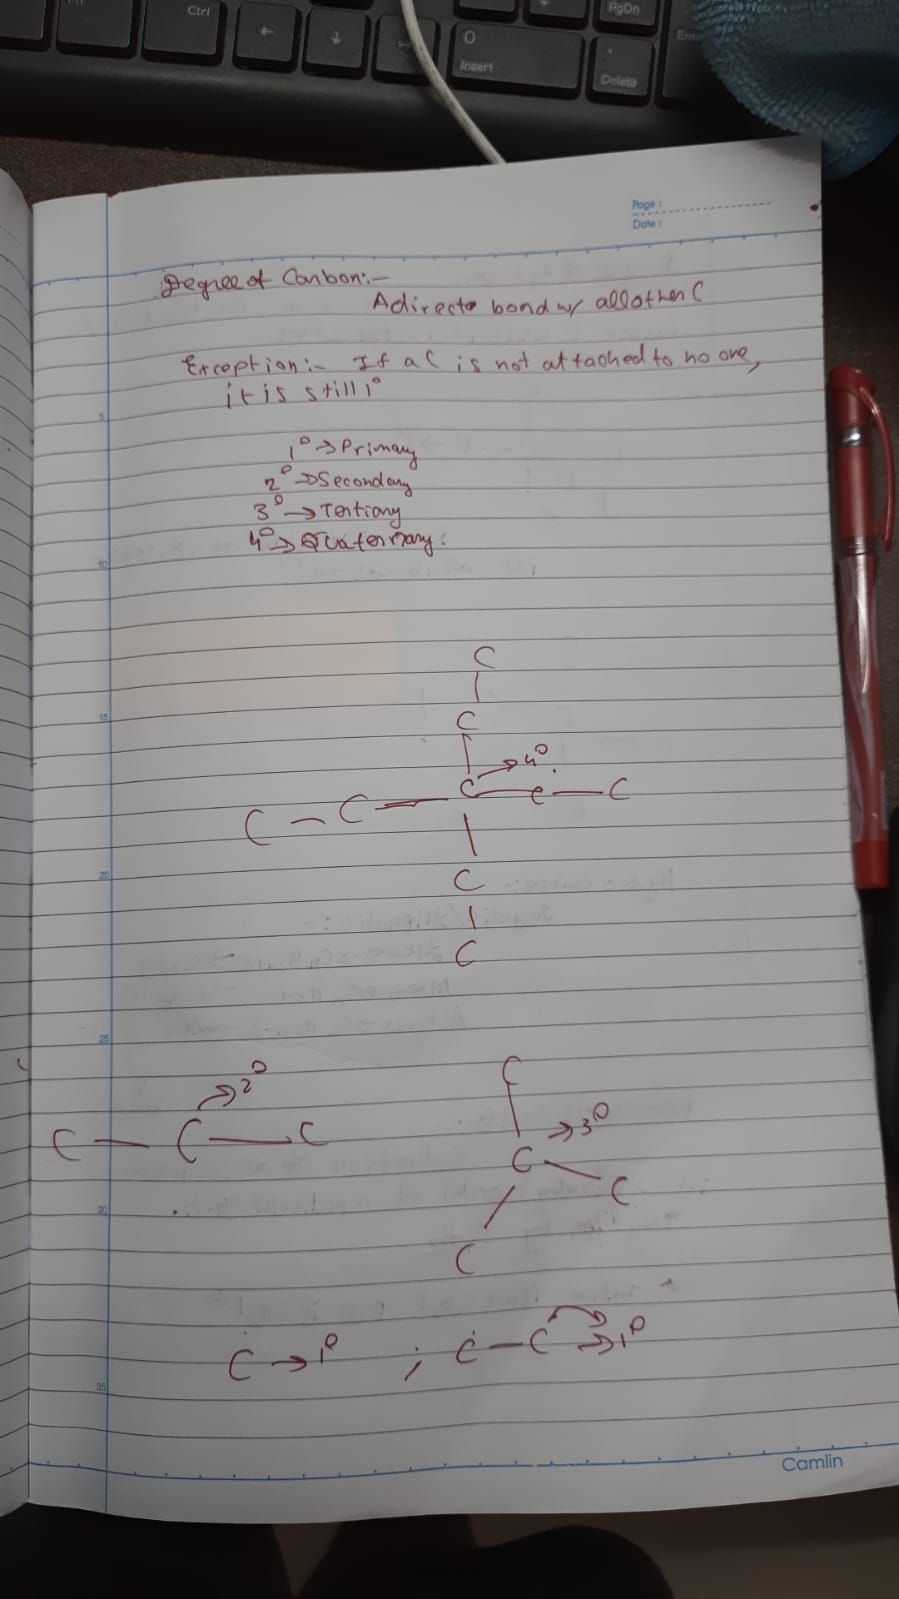 Ctrl
PgDn
←
↓
0
Insert
.
Delete
Page :
Date :
Degree of Carbon:-
A direct bond w/ all other C
Exception:- If a C is not attached to no one,
it is still 1°
1° → Primary
2° → Secondary
3° → Tertiary
4° → Quaternary.
C
C
C → 4°
C - C
C - C
C
C
C - C - C
→ 2°
C
C → 3°
C
C
C → 1° ; C - C → 1°
5
10
15
20
25
30
35
Camlin